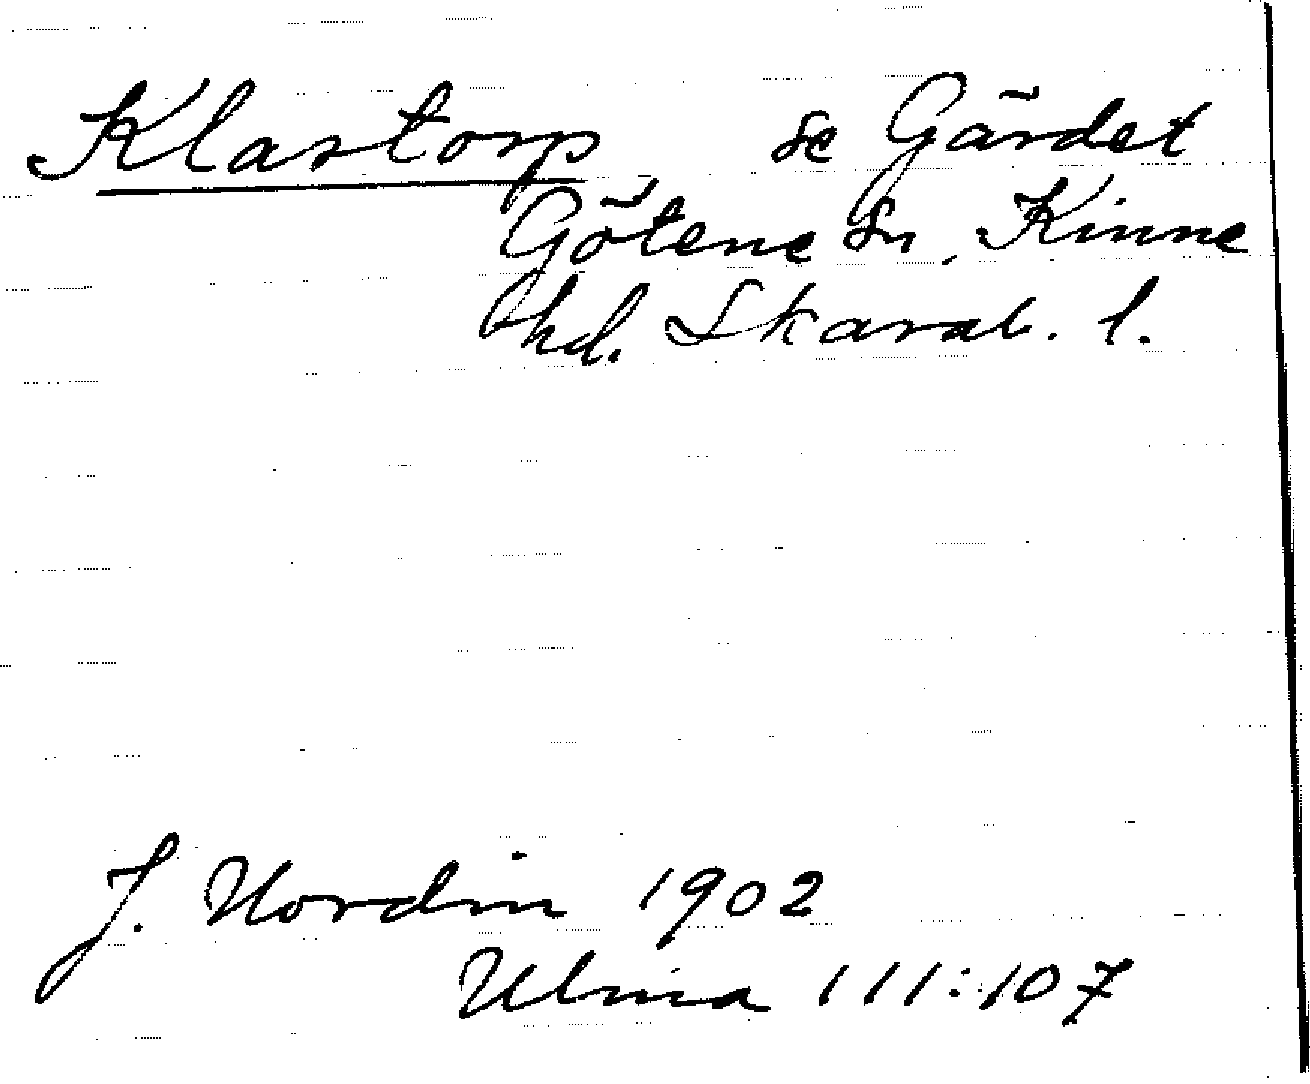 Klastorp se Gärdet
Götene sn, Kinne
hd. Skarab. l.
J. Nordin 1902
Ulma 111:107